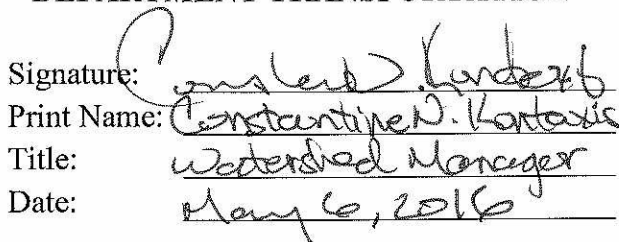 Signature:
Print Name: Constantine N. Kontaxis
Title: Watershed Manager
Date: May 6, 2016